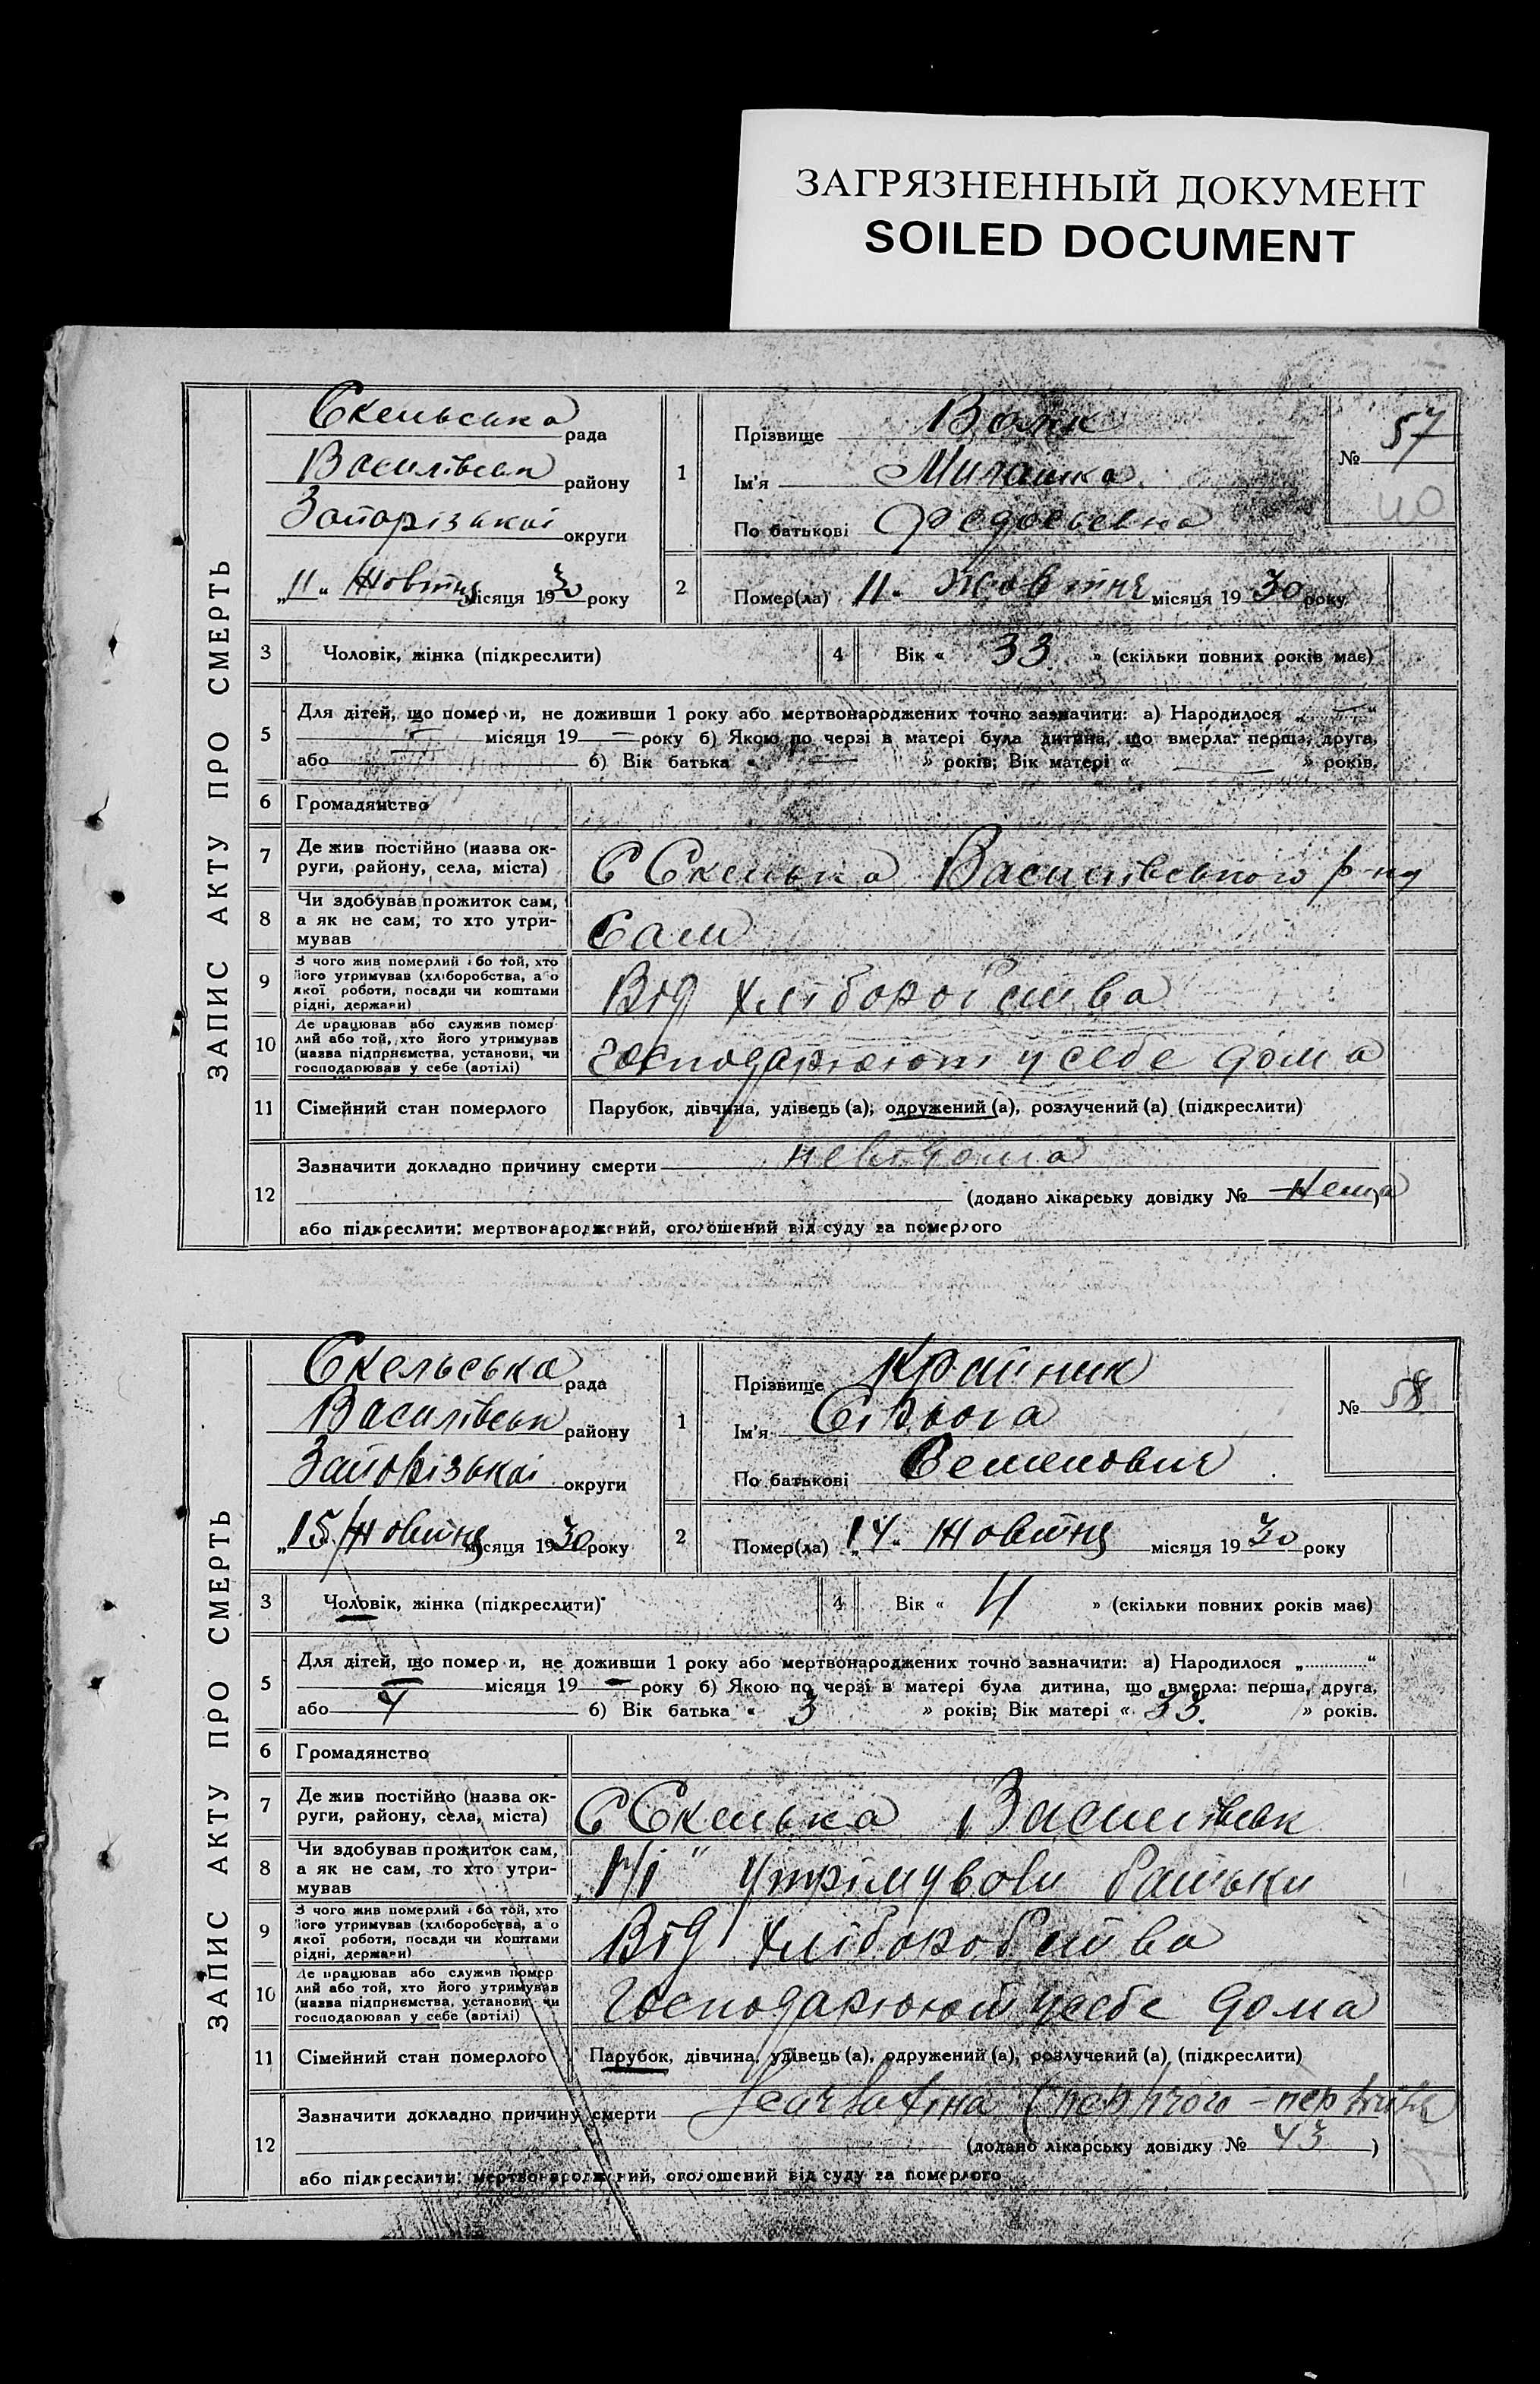 ЗАГРЯЗНЕННЫЙ ДОКУМЕНТ
SOILED DOCUMENT
ЗАПИС АКТУ ПРО СМЕРТЬ
Скельська рада
Василівськ району
Запорізької округи
„11“ Жовтня місяця 1930 року
1
Прізвище
Ім'я
По батькові
№ 57
40
2
Помер(ла) „11“ Жовтня місяця 1930 року
3
Чоловік, жінка (підкреслити)
4
Вік « 33 » (скільки повних років має)
5
Для дітей, що померли, не доживши 1 року або мертвонароджених точно зазначити: а) Народилося „ — “
— місяця 19 — року б) Якою по черзі в матері була дитина, що вмерла: перша, друга,
або — б) Вік батька « — » років; Вік матері « — » років.
6
Громадянство
7
Де жив постійно (назва ок-
руги, району, села, міста)
С Скелька Василівського р-ну
8
Чи здобував прожиток сам,
а як не сам, то хто утри-
мував
Сам
9
З чого жив померлий або той, хто
його утримував (хліборобства, а о
якої роботи, посади чи коштами
рідні, держави)
Від хліборобства
10
Де працював або служив помер
лий або той, хто його утримував
(назва підприємства, установи, чи
господарював у себе (артілі)
господарюют у себе дома
11
Сімейний стан померлого
Парубок, дівчина, удівець (а), одружений (а), розлучений (а) (підкреслити)
12
Зазначити докладно причину смерти невідома
(додано лікарську довідку № Нема)
або підкреслити: мертвонароджений, оголошений від суду за померлого
ЗАПИС АКТУ ПРО СМЕРТЬ
Скельська рада
Василівськ району
Запорізької округи
„15“ Жовтня місяця 1930 року
1
Прізвище Крайник
Ім'я Сірьога
По батькові Семенович
№ 58
2
Помер(ла) „14“ Жовтня місяця 1930 року
3
Чоловік, жінка (підкреслити)
4
Вік « 4 » (скільки повних років має)
5
Для дітей, що померли, не доживши 1 року або мертвонароджених точно зазначити: а) Народилося „ “
— місяця 19 — року б) Якою по черзі в матері була дитина, що вмерла: перша, друга,
або 4 б) Вік батька « 3 » років; Вік матері « 33 » років.
6
Громадянство
7
Де жив постійно (назва ок-
руги, району, села, міста)
С Скелька Василівськ
8
Чи здобував прожиток сам,
а як не сам, то хто утри-
мував
„Ні“ утрімували батьки
9
З чого жив померлий або той, хто
його утримував (хліборобства, а о
якої роботи, посади чи коштами
рідні, держави)
Від хліборобства
10
Де працював або служив помер
лий або той, хто його утримував
(назва підприємства, установи, чи
господарював у себе (артілі)
господарюют у себе дома
11
Сімейний стан померлого
Парубок, дівчина, удівець (а), одружений (а), розлучений (а) (підкреслити)
12
Зазначити докладно причину смерти
(додано лікарську довідку № 43)
або підкреслити: мертвонароджений, оголошений від суду за померлого